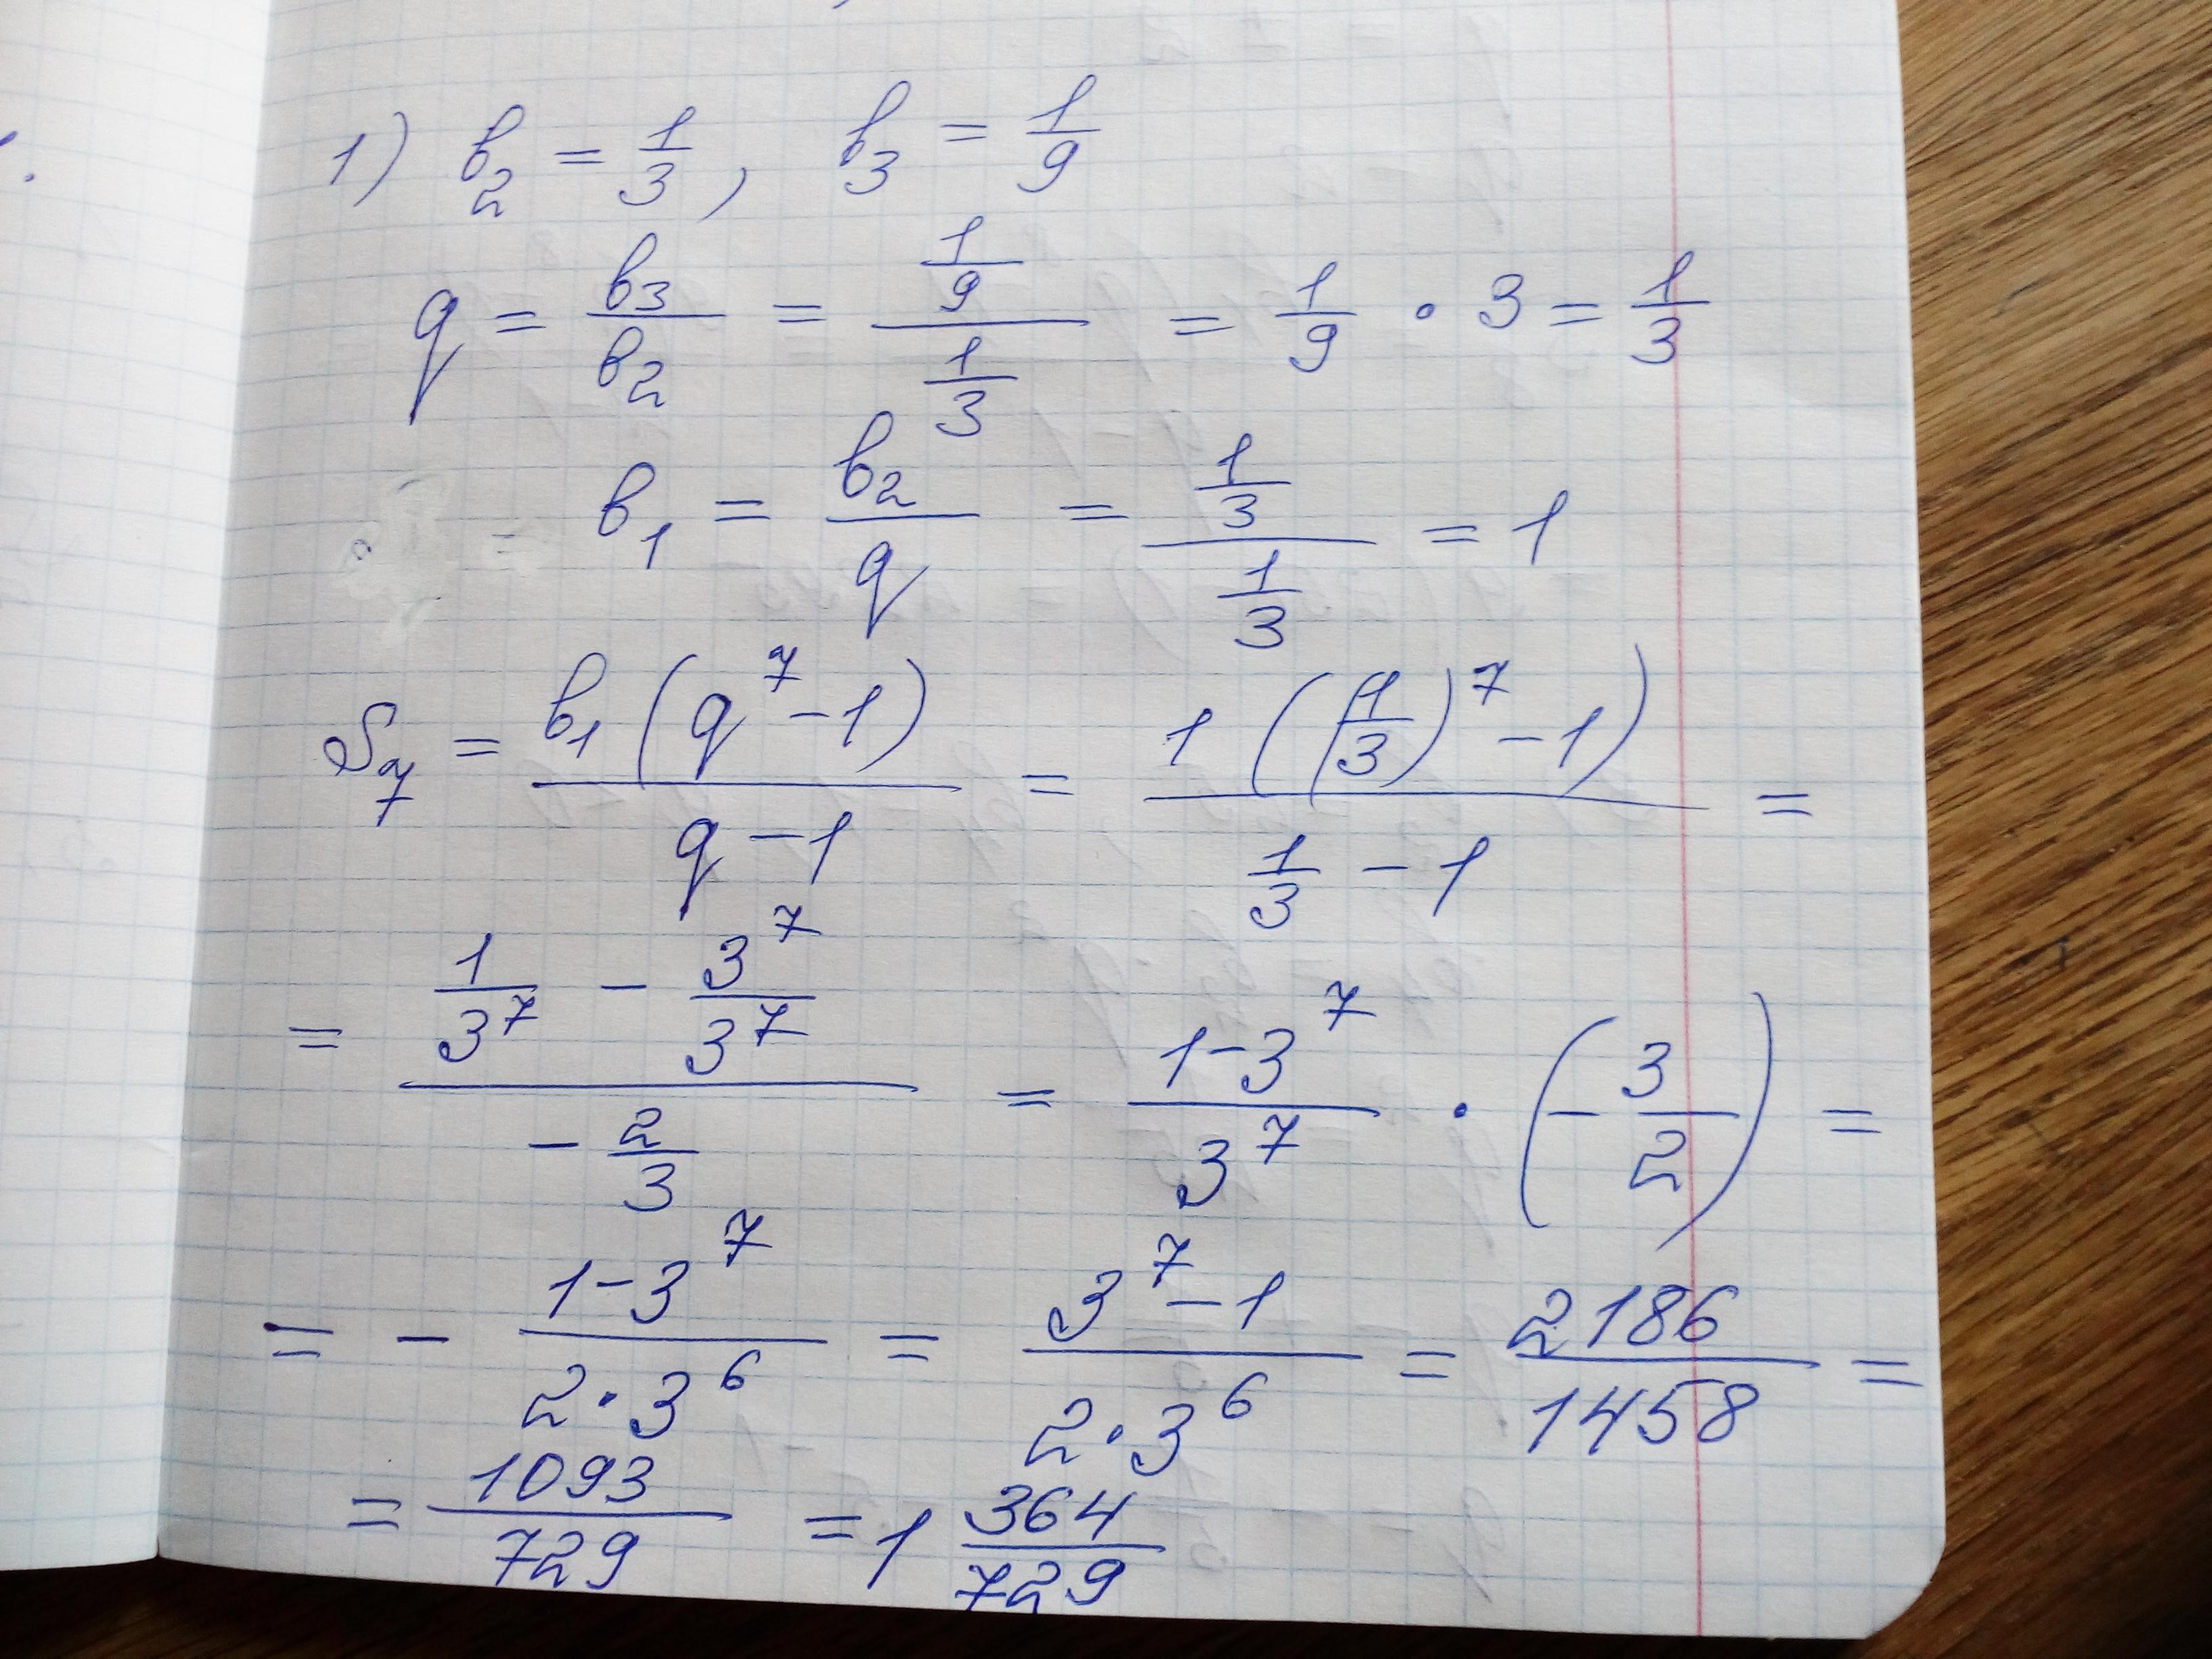 1) b₂ = 1/3, b₃ = 1/9
q = b₃/b₂ = (1/9)/(1/3) = 1/9 · 3 = 1/3
b₁ = b₂/q = (1/3)/(1/3) = 1
S₇ = b₁(q⁷ - 1)/(q - 1) = 1((1/3)⁷ - 1)/(1/3 - 1) =
= (1/3⁷ - 3⁷/3⁷)/(-2/3) = (1-3⁷)/3⁷ · (-3/2) =
= - (1-3⁷)/(2·3⁶) = (3⁷-1)/(2·3⁶) = 2186/1458 =
= 1093/729 = 1 364/729